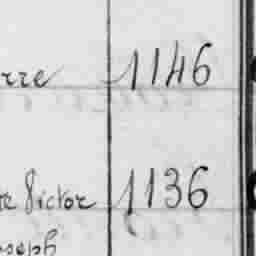 rre 1146
re Victor 1136
oseph